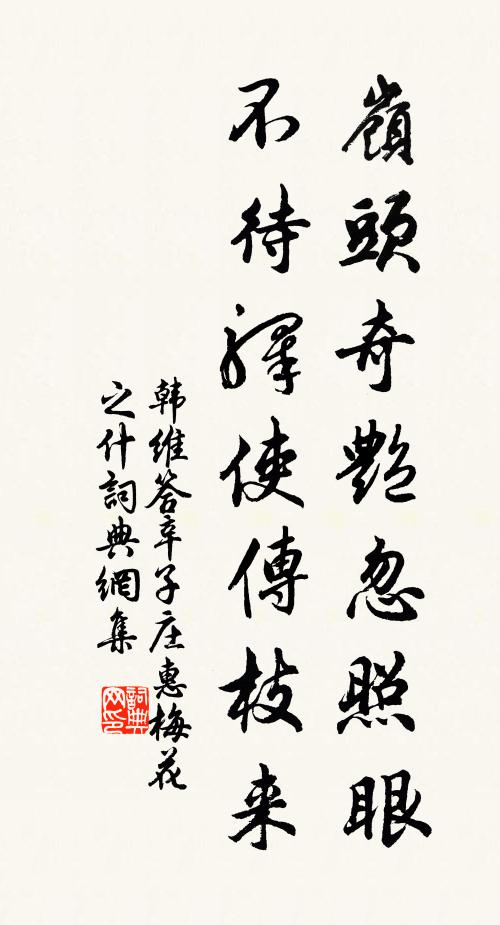 嶺頭奇艷忽照眼
不待驛使傳枝来
韩維答辛子庄惠梅花
之什詞典網集
詞典网印